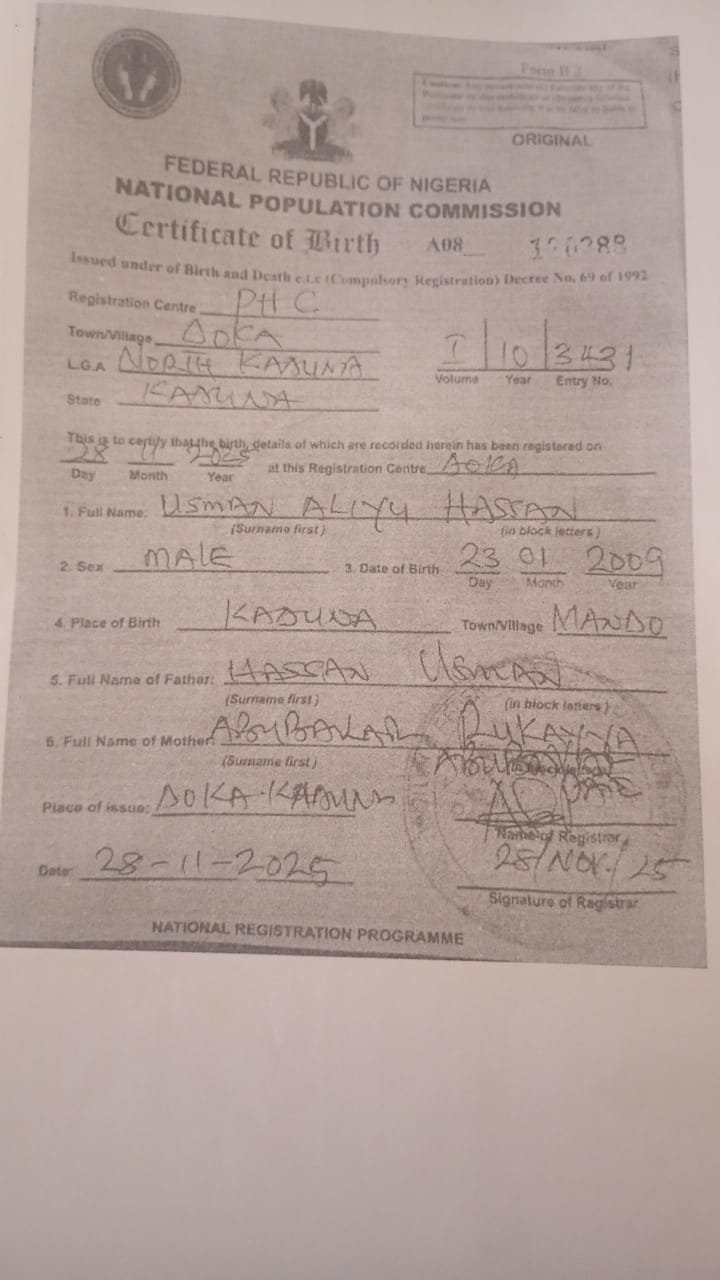 Form B 2
ORIGINAL
FEDERAL REPUBLIC OF NIGERIA
NATIONAL POPULATION COMMISSION
Certificate of Birth A08
Issued under of Birth and Death e.t.c (Compulsory Registration) Decree No. 69 of 1992
Registration Centre PHC
Town/Village DOKA
L.G.A NORTH KADUNA
I 10 3431
Volume Year Entry No.
State KADUNA
This is to certify that the birth, details of which are recorded herein has been registered on
28 11 2025 at this Registration Centre DOKA
Day Month Year
1. Full Name: USMAN ALIYU HASSAN
(Surname first) (in block letters)
2. Sex MALE 3. Date of Birth 23 01 2009
Day Month Year
4. Place of Birth KADUNA Town/Village MANDO
5. Full Name of Father: HASSAN USMAN
(Surname first) (in block letters)
6. Full Name of Mother: ABUBAKAR RUKAYYA
(Surname first)
Place of issue: DOKA-KADUNA
Name of Registrar
Date: 28-11-2025 28/NOV./25
Signature of Registrar
NATIONAL REGISTRATION PROGRAMME